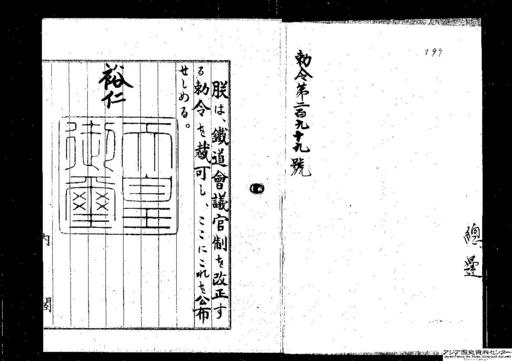 199
勅令第二百九十九號
總運
朕は、鐵道會議官制を改正す
る勅令を裁可し、ここにこれを公布
せしめる。
裕仁
天皇御璽
内閣
アジア歴史資料センター